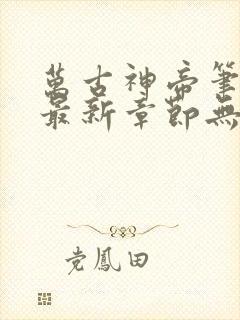 萬古神帝筆
最新章節無
党鳳田